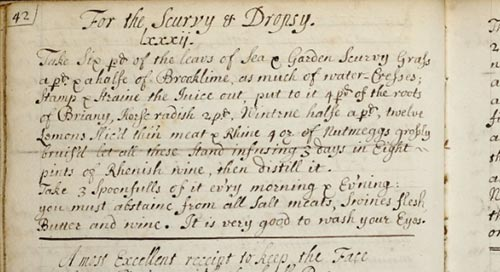 42
For the Scurvy & Dropsy.
lxxxii.
Take Six pd of the leavs of Sea & Garden Scurvy Grass
a pd. & a halfe of Brooklime, as much of water-Cresses,
Stamp & Straine the Juice out, put to it 4 pd. of the roots
of Briany, Horse radish 2 pd, Wintrne halfe a pd, twelve
Lemons slic'd thin meat & Rhine 4 oz of Nutmeggs grosly
bruis'd let all these stand infusing 3 days in Eight
pints of Rhenish wine, then distill it.
Take 3 Spoonfulls of it evry morning & Ev'ning:
you must abstaine from all Salt meats, Swines flesh
Butter and wine. It is very good to wash your Eyes.
A most Excellent receipt to keep the Face